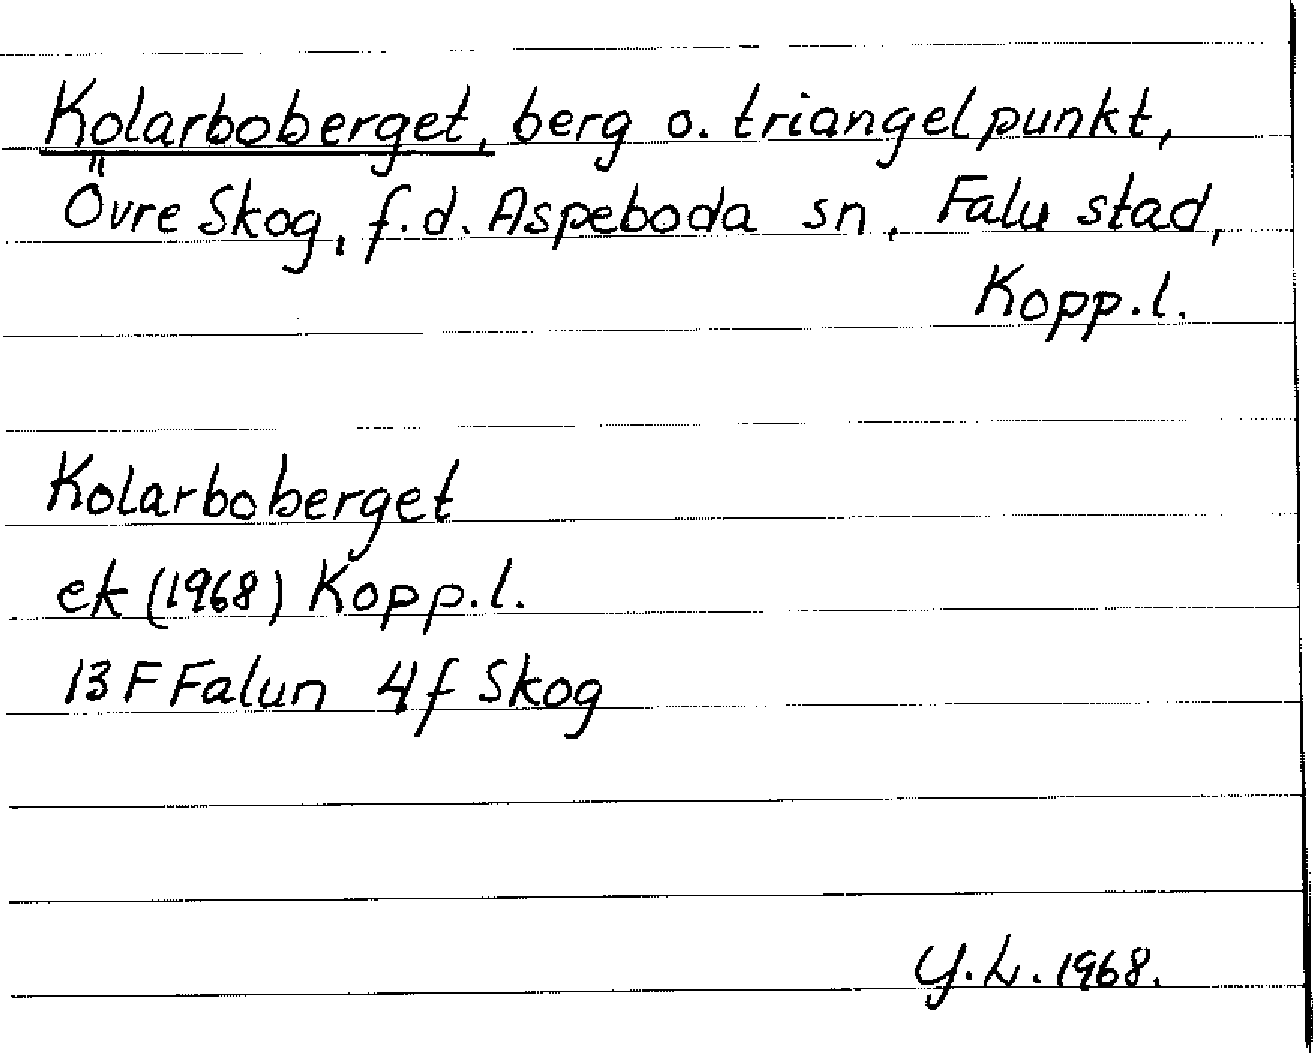 Kolarboberget, berg o. triangelpunkt,
Övre Skog, f.d. Aspeboda sn, Falu stad,
Kopp.l.
Kolarboberget
ek (1968) Kopp.l.
13 F Falun 4f Skog
Y.L. 1968.